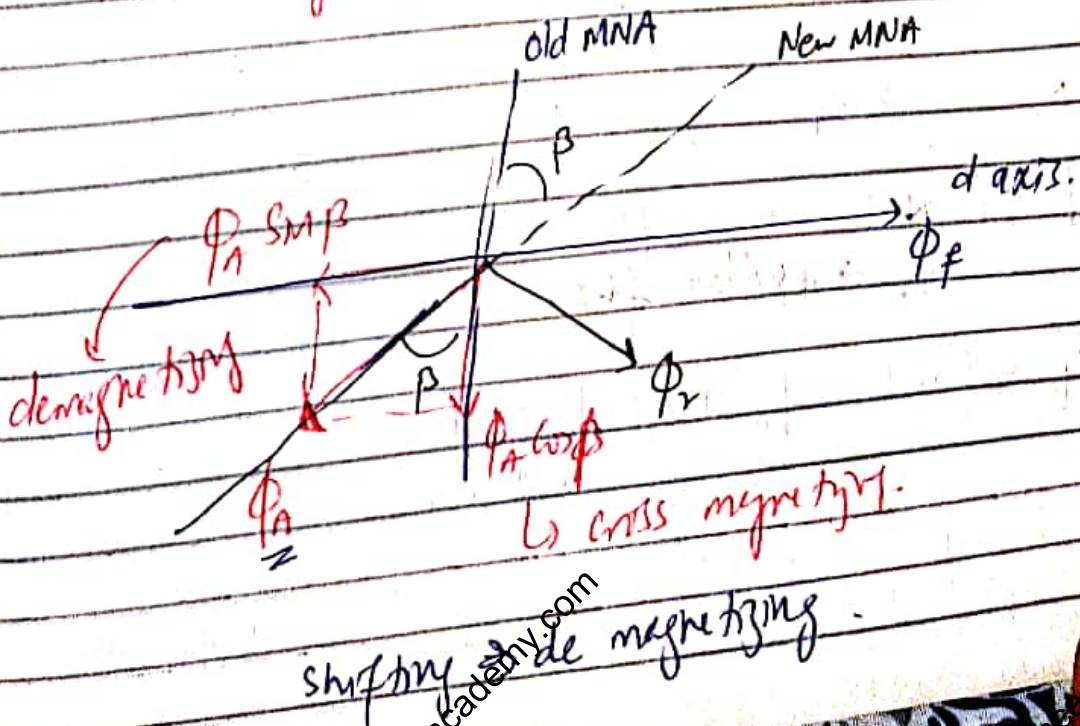 old MNA
New MNA
β
d axis.
ϕA SMβ
ϕf
demagnetizing
β
ϕr
ϕA Cosβ
ϕA
↳ cross magnetizing.
shifting & de magnetizing.
cademy.com